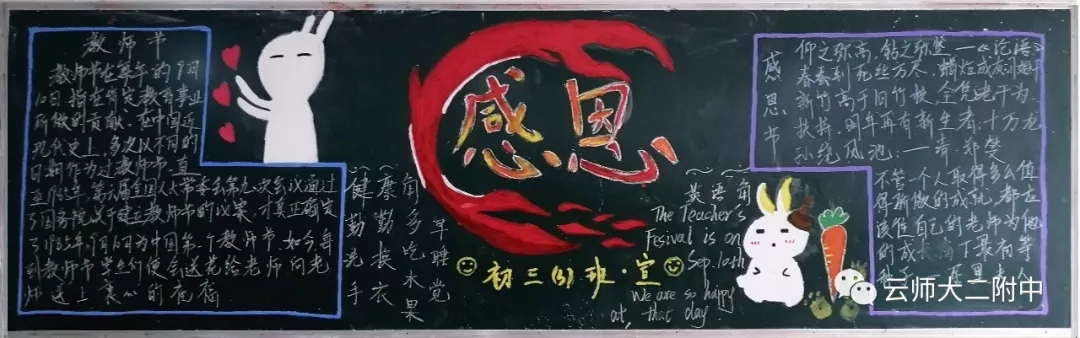 教师节
教师节在每年的9月
10日,旨在肯定教育事业
所做的贡献。在中国近
现代史上,多次以不同的
日期作为过教师节。直
至1985年,第六届全国人大常委会第九次会议通过
了国务院关于建立教师节的议案,才真正确定
了1985年9月10日为中国第一个教师节。如今每
到教师节学生们便会送花给老师向老
师送上衷心的祝福
健康角
勤勤多早
洗换吃睡
手衣水觉
果
感恩
初三(3)班·宣
英语角
The Teacher's
Fesival is on
Sep.10th
We are so happy
at that day
感恩节
仰之弥高,钻之弥坚——《论语》
春蚕到死丝方尽,蜡炬成灰泪始干
新竹高于旧竹枝,全凭老干为
扶持,明年再有新生者,十万龙
孙绕凤池:——清 郑燮
不管一个人取得多么值
得骄傲的成就,都应
该
自己的老师为他
的成
了最初等
云师大二附中